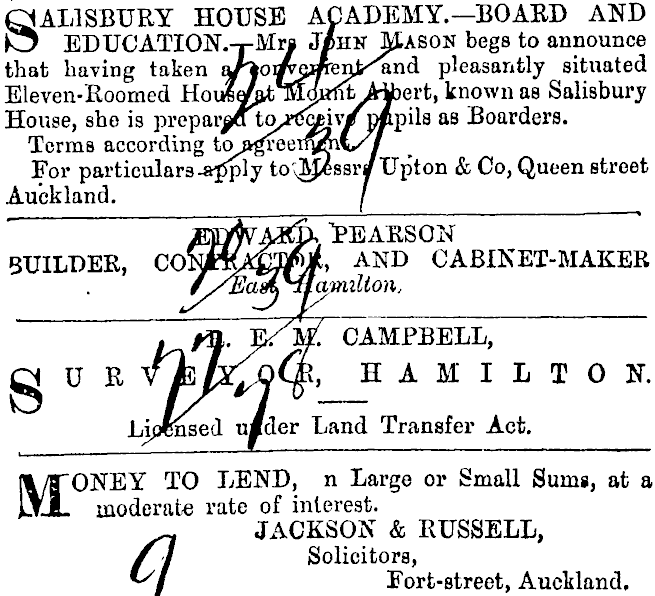 SALISBURY HOUSE ACADEMY.—BOARD AND
EDUCATION.—Mrs JOHN MASON begs to announce
that having taken a convenient and pleasantly situated
Eleven-Roomed House at Mount Albert, known as Salisbury
House, she is prepared to receive pupils as Boarders.
Terms according to agreement.
For particulars apply to Messrs Upton & Co, Queen street
Auckland.
EDWARD PEARSON
BUILDER, CONTRACTOR, AND CABINET-MAKER
East Hamilton,
E. M. CAMPBELL,
SURVEYOR, HAMILTON.
Licensed under Land Transfer Act.
MONEY TO LEND, n Large or Small Sums, at a
moderate rate of interest.
JACKSON & RUSSELL,
Solicitors,
Fort-street, Auckland.
9